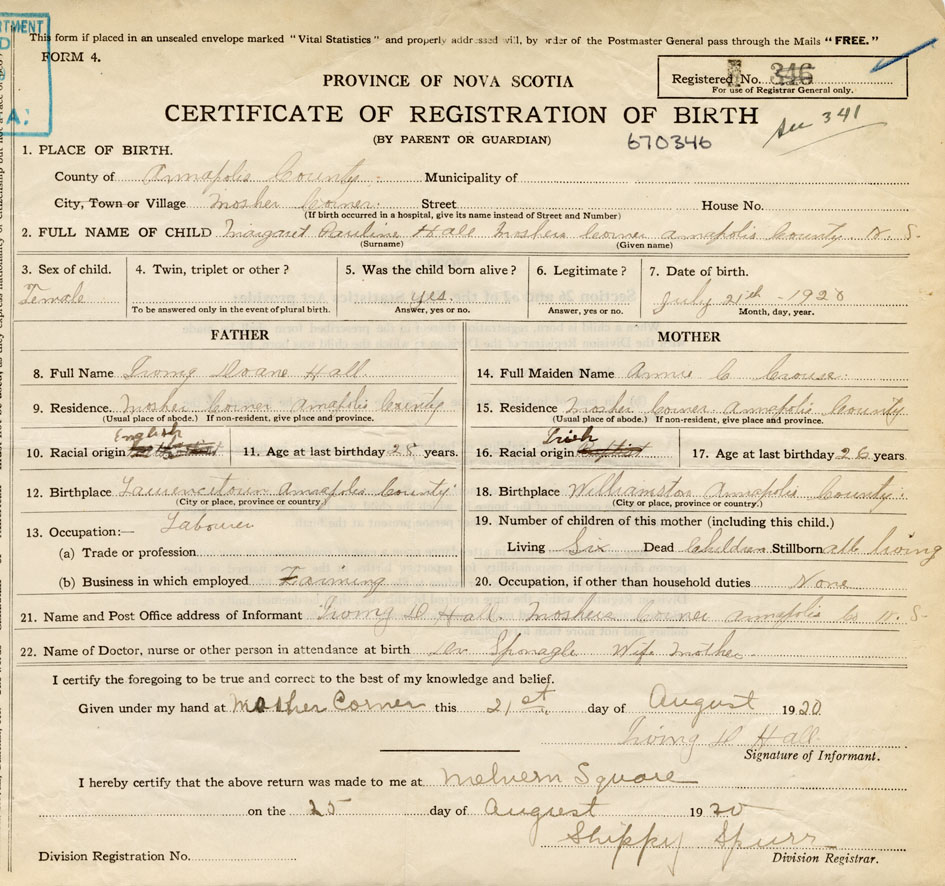 This form if placed in an unsealed envelope marked "Vital Statistics" and properly addressed will, by order of the Postmaster General pass through the Mails "FREE."
FORM 4.
PROVINCE OF NOVA SCOTIA
Registered No. 346
For use of Registrar General only.
CERTIFICATE OF REGISTRATION OF BIRTH
See 341
(BY PARENT OR GUARDIAN)
670346
1. PLACE OF BIRTH.
County of Annapolis County Municipality of
City, Town or Village Mosher Corner Street House No.
(If birth occurred in a hospital, give its name instead of Street and Number)
2. FULL NAME OF CHILD Margaret Pauline Hall Moshers Corner Annapolis County N. S.
(Surname) (Given name)
3. Sex of child. 4. Twin, triplet or other? 5. Was the child born alive? 6. Legitimate? 7. Date of birth.
Female yes July 21th - 1920
To be answered only in the event of plural birth. Answer, yes or no. Answer, yes or no. Month, day, year.
FATHER
8. Full Name Irving Doane Hall
9. Residence. Mosher Corner Annapolis County
(Usual place of abode.) If non-resident, give place and province.
English
10. Racial origin 11. Age at last birthday 28 years.
12. Birthplace Lawrencetown Annapolis County
(City or place, province or country.)
13. Occupation:— Labourer
(a) Trade or profession
(b) Business in which employed Farming
MOTHER
14. Full Maiden Name Annie C Crouse
15. Residence Mosher Corner Annapolis County
(Usual place of abode.) If non-resident, give place and province.
Irish
16. Racial origin Baptist 17. Age at last birthday 26 years.
18. Birthplace Williamston Annapolis County.
(City or place, province or country.)
19. Number of children of this mother (including this child.)
Living Six Dead Children Stillborn all living
20. Occupation, if other than household duties None
21. Name and Post Office address of Informant Irving D Hall. Moshers Corner Annapolis Co N. S.
22. Name of Doctor, nurse or other person in attendance at birth Dr Sponagle Wife Mother
I certify the foregoing to be true and correct to the best of my knowledge and belief.
Given under my hand at Mosher Corner this 21st day of August 1920
Irving D Hall
Signature of Informant.
I hereby certify that the above return was made to me at Melvern Square
on the 25 day of August 1920
Shippy Spurr
Division Registration No. Division Registrar.